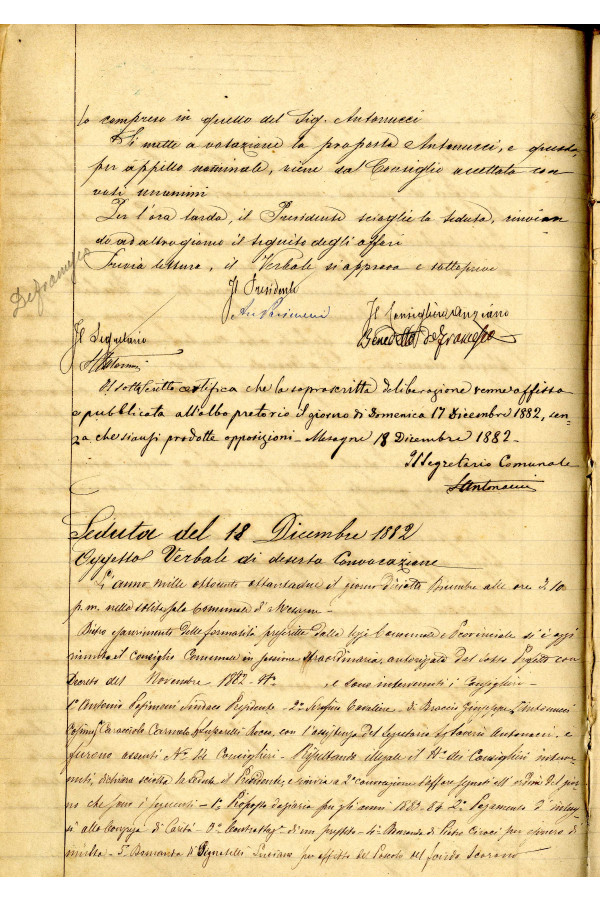 lo compreso in quello del Sig. Antonucci
Si mette a votazione la proposta Antonucci, e questa,
per appello nominale, viene dal Consiglio accettata con
voti unanimi
Per l'ora tarda, il Presidente scioglie la seduta, rinvian
do ad altro giorno il seguito degli affari
Previa lettura, il Verbale si approva e sottoscrive
Defrancesco
Il Presidente
Il Consigliere anziano
Benedetto Defrancesco
Il Segretario
Il sottoscritto certifica che la soprascritta deliberazione venne affissa
e pubblicata all'albo pretorio il giorno di Domenica 17 Dicembre 1882, sen=
za che siansi prodotte opposizioni – Mesagne 18 Dicembre 1882 –
Il Segretario Comunale
SAntonucci
Seduta del 18 Dicembre 1882
Oggetto Verbale di deserta Convocazione
L'anno mille ottocento ottantadue il giorno diciotto Dicembre alle ore 3.10
p.m. nella solita sala Comunale di Mesagne
Dietro esaurimento delle formalità prescritte dalla legge Comunale e Provinciale si è oggi
riunito il Consiglio Comunale in sessione straordinaria, autorizzata dal Sotto Prefetto con
del Novembre 1882 - N° e sono intervenuti i Consiglieri
1° Antonio Sindaco Presidente - 2° Serafino Cavaliere - di Braccio Giuseppe Antonucci
Caracciolo Carmelo Rocco, con l'assistenza del Segretario Saverio Antonucci - e
furono assenti N° 14 Consiglieri - Risultando illegale il N° dei Consiglieri interve
nuti, dichiara sciolta la seduta il Presidente, e rinvia a 2ª convocazione l'affare segnati all'ordine del gior
no che sono i seguenti - 1° Proposta daziaria per gli anni 1883-84 2° Pagamento d'
alla Congrega di Carità - 3° di un prestito - 4° Domanda di Pietro per di
multa - 5° Domanda di Pignatelli per affitto del Pascolo del fondo